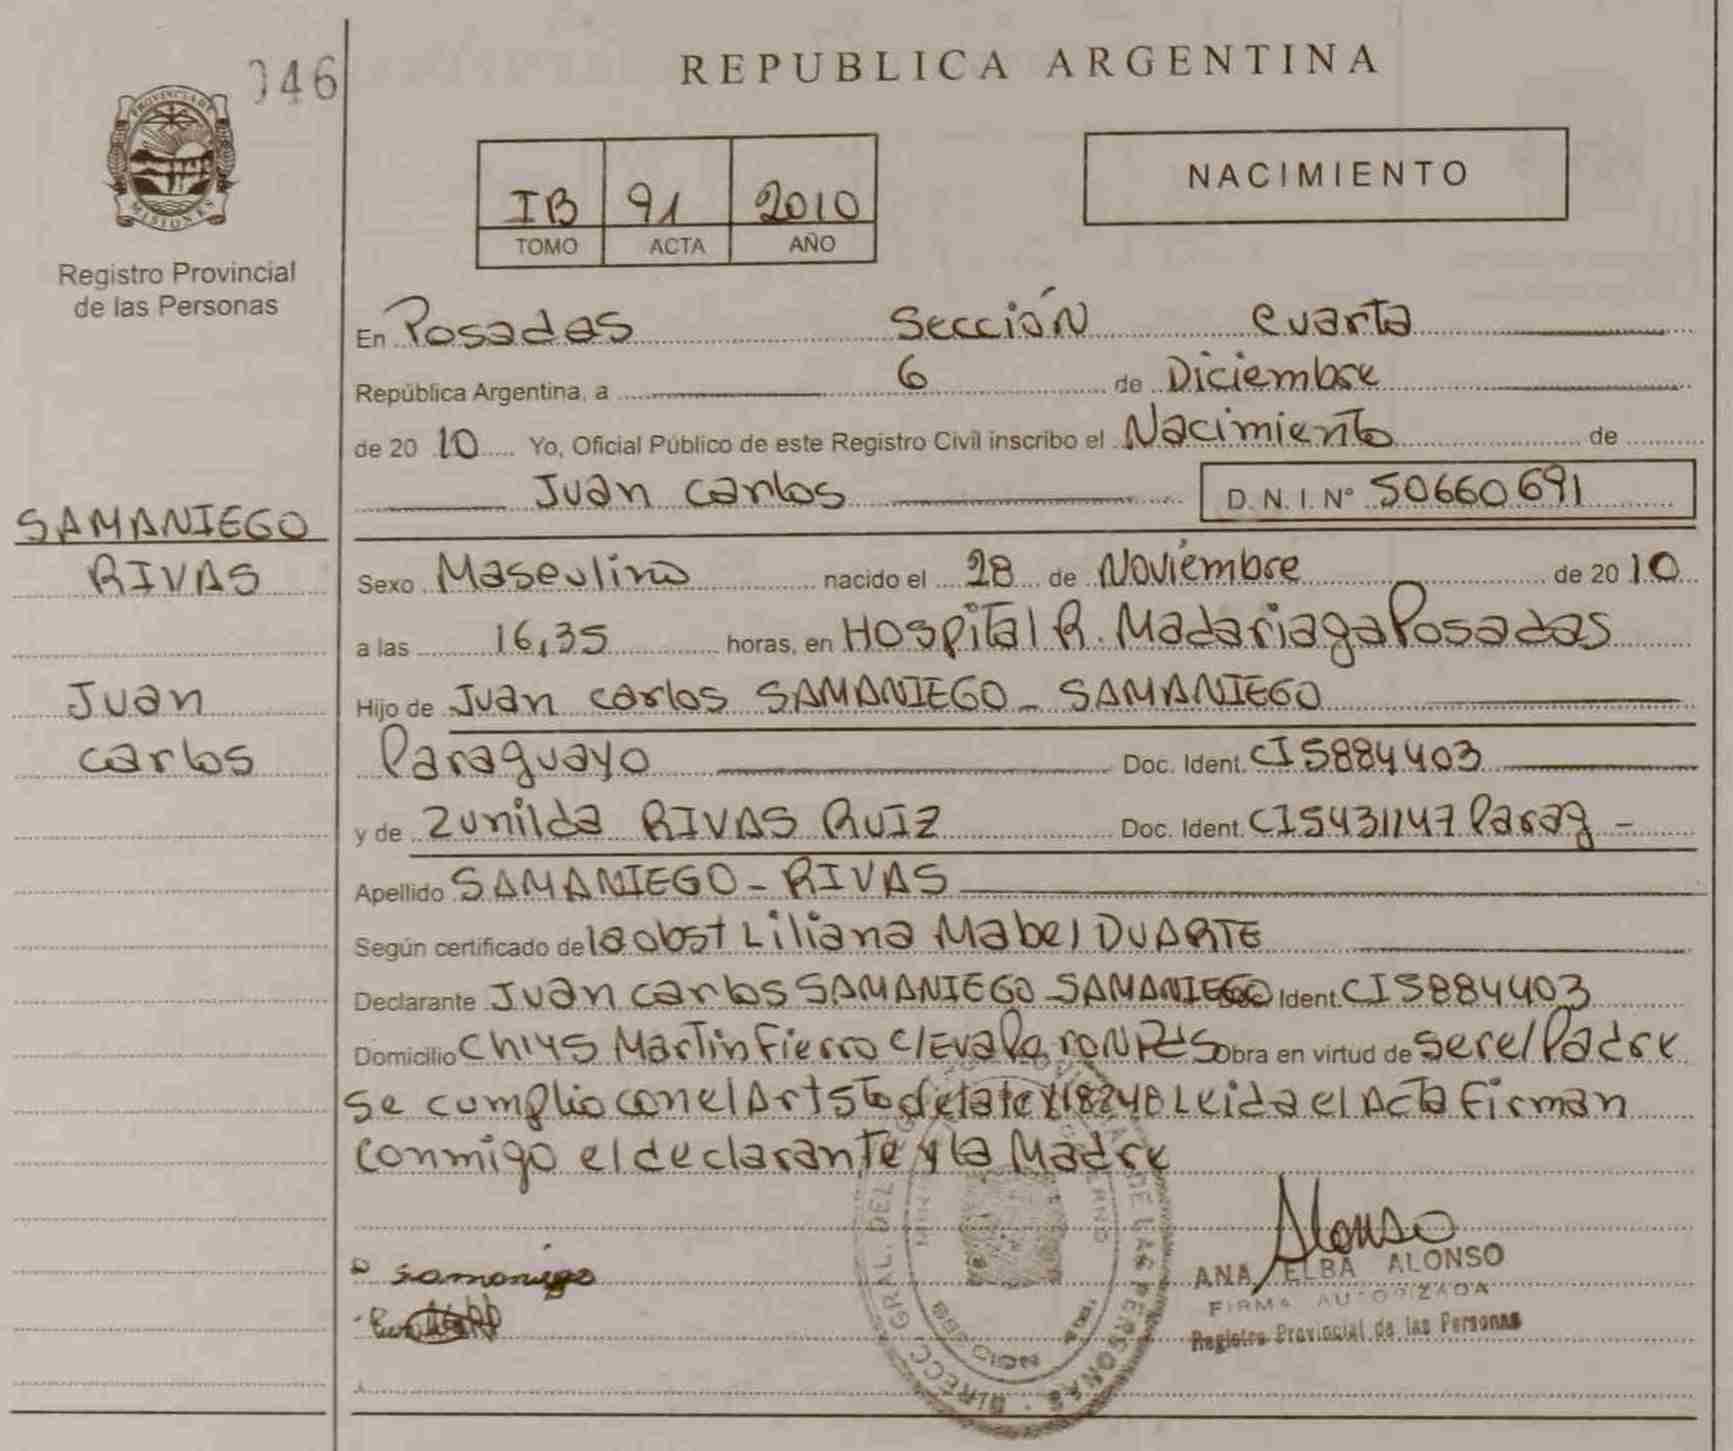 046
PROVINCIA DE
MISIONES
Registro Provincial
de las Personas
SAMANIEGO
RIVAS
Juan
Carlos
REPUBLICA ARGENTINA
IB 91 2010
TOMO ACTA AÑO
NACIMIENTO
En Posadas Sección Cuarta
República Argentina, a 6 de Diciembre
de 20 10 Yo, Oficial Público de este Registro Civil inscribo el Nacimiento de
Juan Carlos D. N. I. Nº 50660691
Sexo Masculino nacido el 28 de Noviembre de 20 10
a las 16,35 horas, en Hospital R. Madariaga Posadas
Hijo de Juan Carlos SAMANIEGO - SAMANIEGO
Paraguayo Doc. Ident. CI 5884403
y de Zunilda RIVAS RUIZ Doc. Ident. CI 5431147 Parag -
Apellido SAMANIEGO - RIVAS
Según certificado de la obst Liliana Mabel DUARTE
Declarante Juan Carlos SAMANIEGO - SAMANIEGO Doc. Ident. CI 5884403
Domicilio Ch 145 Martin Fierro C/ Eva Peron Pdas Obra en virtud de ser el Padre
se cumplio con el Art 5to de la ley 18248 Leida el Acta Firman
conmigo el declarante y la Madre
Samaniego
Alonso
ANA ELBA ALONSO
FIRMA AUTORIZADA
Registro Provincial de las Personas
DIRECC. GRAL. DEL DE LAS PERSONAS